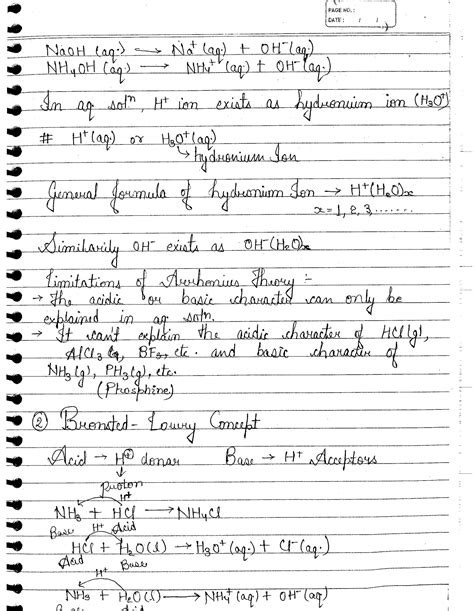 PAGE NO.:
DATE: / /
NaOH (aq.) → Na⁺ (aq) + OH⁻(aq)
NH₄OH (aq) → NH₄⁺ (aq) + OH⁻ (aq.)
In aq solⁿ, H⁺ ion exists as hydronium ion (H₃O⁺)
# H⁺(aq) or H₃O⁺(aq)
↳ hydronium Ion
General formula of hydronium Ion → H⁺(H₂O)x
x = 1, 2, 3.......
Similarily OH⁻ exists as OH⁻(H₂O)x
Limitations of Arrhenius Theory :-
→ The acidic or basic character can only be
explained in aq solⁿ.
→ It can't explain the acidic character of HCl(g),
AlCl₃ BF₃, etc. and basic character of
NH₃(g), PH₃(g), etc.
(Phosphine)
② Bronsted-Lowry Concept
Acid → H⊕ donar Base → H⁺ Acceptors
↓
proton
H⁺
NH₃ + HCl → NH₄Cl
Base H⁺ Acid
HCl + H₂O(l) → H₃O⁺(aq.) + Cl⁻(aq.)
Acid Base
H⁺
NH₃ + H₂O(l) → NH₄⁺(aq) + OH⁻(aq)
Base Acid